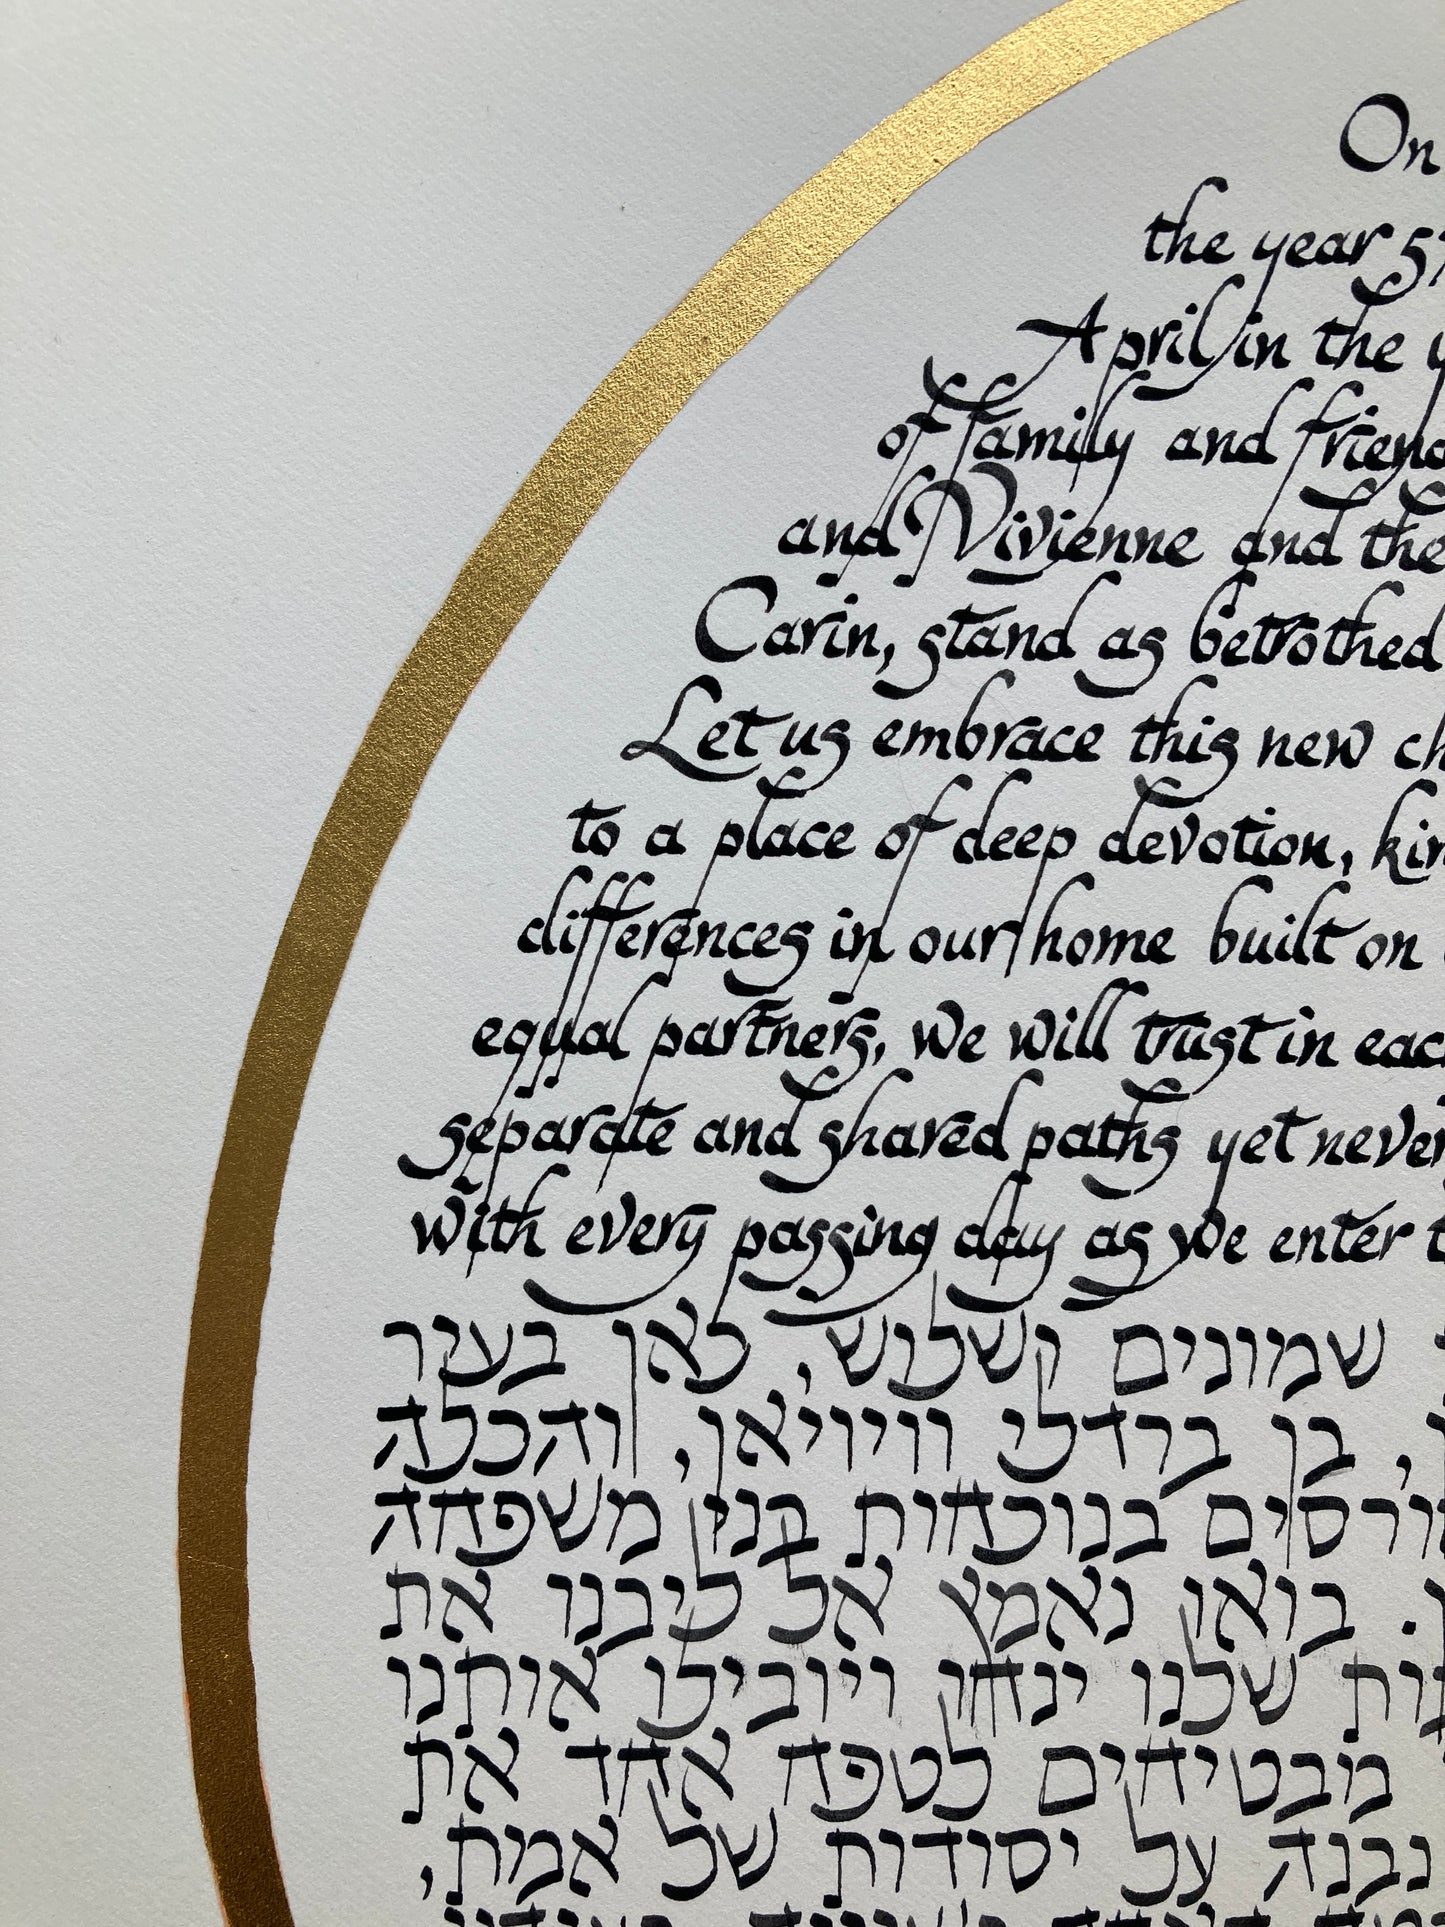 On
the year 57
April in the y
of family and friend
and Vivienne and the
Carin, stand as betrothed
Let us embrace this new ch
to a place of deep devotion, kin
differences in our home built on
equal partners, we will trust in eac
separate and shared paths yet never
with every passing day as we enter t
שמונים ושלוש, כאן בעיר
בן ברדלי וויויאן, והכלה
ורסים בנוכחות בני משפחה
בואו נאמץ אל ליבנו את
שלנו ינחו ויובילו אותנו
מבטיחים לטפח אחד את
נבנה על יסודות של אמת,